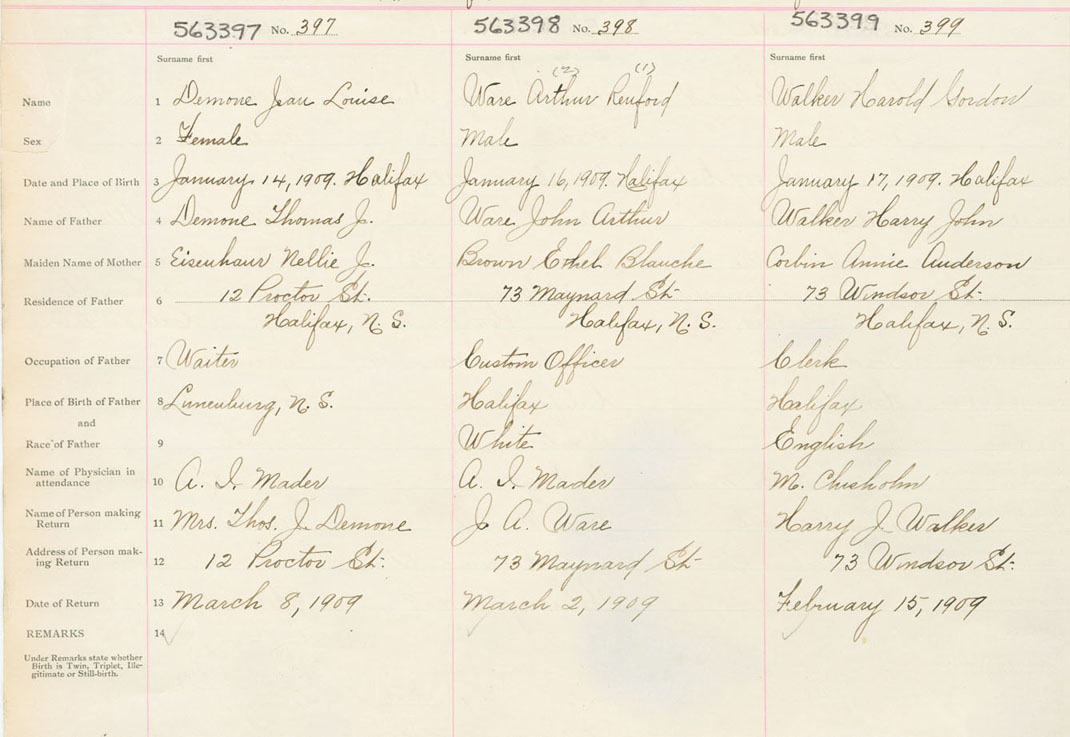 563397 No. 397 563398 No. 398 563399 No. 399
Surname first Surname first Surname first
(2) (1)
Name 1 Demone Jean Louise Ware Arthur Renford Walker Harold Gordon
Sex 2 Female Male Male
Date and Place of Birth 3 January 14, 1909. Halifax January 16, 1909. Halifax January 17, 1909. Halifax
Name of Father 4 Demone Thomas J. Ware John Arthur Walker Harry John
Maiden Name of Mother 5 Eisenhaur Nellie J. Brown Ethel Blanche Corbin Annie Anderson
Residence of Father 6 12 Proctor St. 73 Maynard St. 73 Windsor St.
Halifax, N. S. Halifax, N. S. Halifax, N. S.
Occupation of Father 7 Waiter Custom Officer Clerk
Place of Birth of Father 8 Lunenburg, N. S. Halifax Halifax
and
Race of Father 9 White English
Name of Physician in
attendance 10 A. I. Mader A. I. Mader M. Chisholm
Name of Person making
Return 11 Mrs. Thos. J. Demone J A. Ware Harry J. Walker
Address of Person mak-
ing Return 12 12 Proctor St. 73 Maynard St. 73 Windsor St.
Date of Return 13 March 8, 1909 March 2, 1909 February 15, 1909
REMARKS 14
Under Remarks state whether
Birth is Twin, Triplet, Ille-
gitimate or Still-birth.